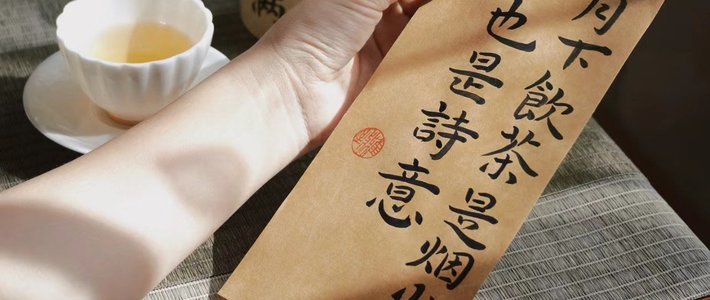 月下飲茶是烟
也是詩意